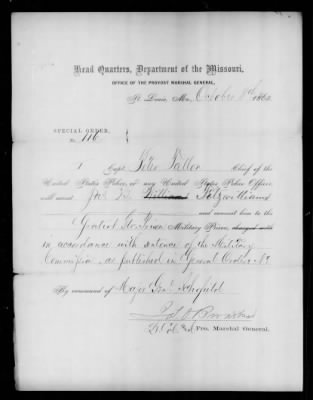 Head Quarters, Department of the Missouri,
OFFICE OF THE PROVOST MARSHAL GENERAL,
St. Louis, Mo., October 8th 186
SPECIAL ORDER,
No. 116 {
Capt Peter Tallon Chief of the
United States Police, or any United States Police Officer,
will arrest William Fitzwilliams
and commit him to the
Gratiot Street Prison Military Prison, charged with
in accordance with sentence of the Military
Commission as published in General Orders No
By command of Major Genl Schofield
Lt Col & Pro. Marshal General.